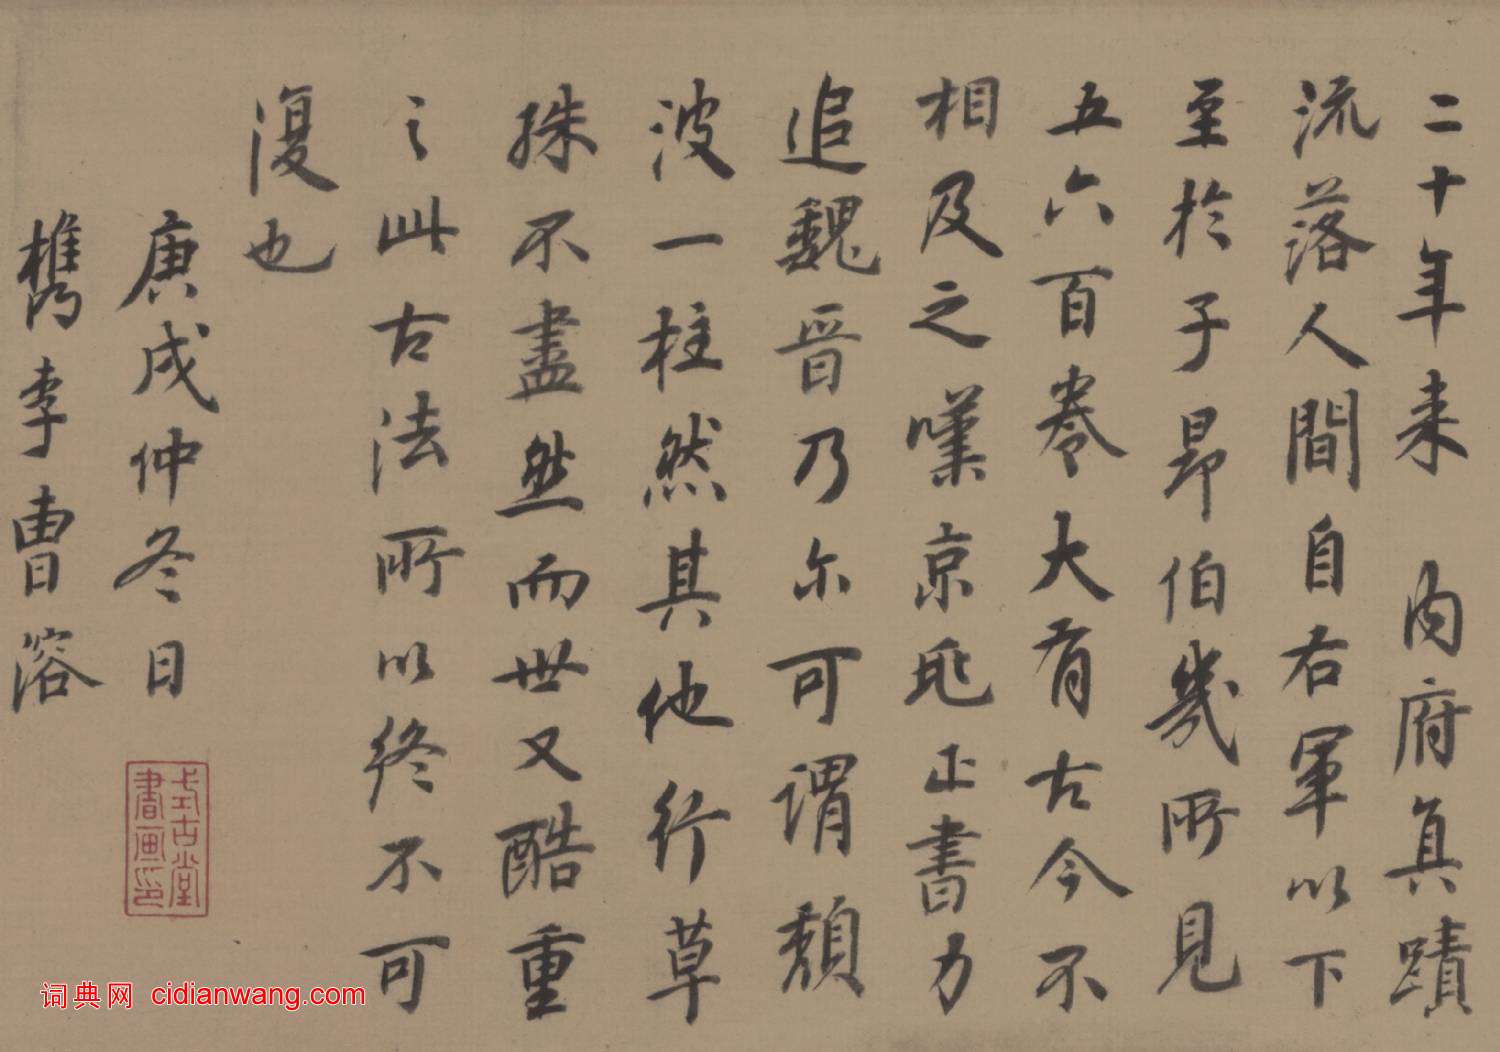 二十年来 内府真蹟
流落人間自右軍以下
至於子昂伯幾所見
五六百卷大有古今不
相及之嘆京兆正書力
追魏晋乃尔可謂頹
波一柱然其他行草
殊不盡然而世又酷重
之此古法所以終不可
復也
庚戌仲冬日
檇李曹溶
式古堂
書画印
词典网 cidianwang.com